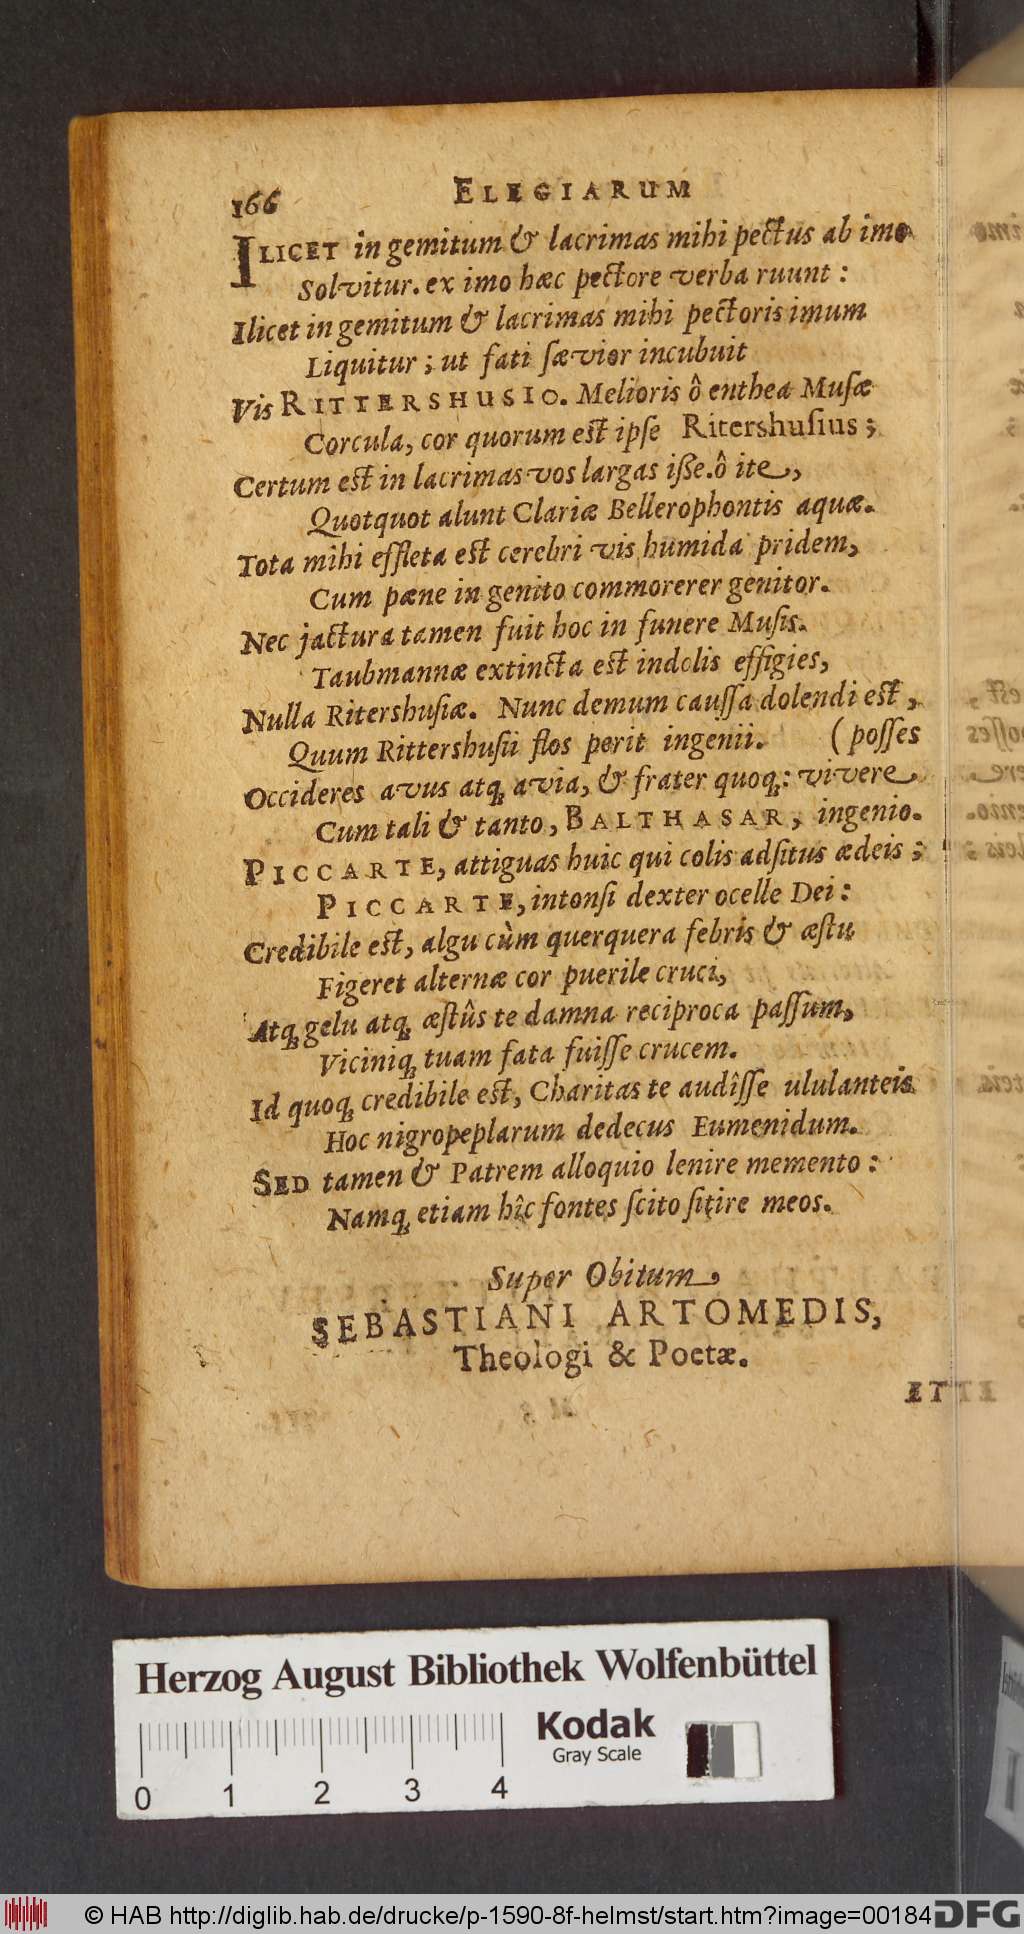 166 ELEGIARUM
ILICET in gemitum & lacrimas mihi pectus ab imo
Solvitur. ex imo hæc pectore verba ruunt:
Ilicet in gemitum & lacrimas mihi pectoris imum
Liquitur; ut fati ſævior incubuit
Vis RITTERSHUSIO. Melioris ô enthea Muſæ
Corcula, cor quorum eſt ipſe Ritershuſius;
Certum eſt in lacrimas vos largas iſſe. ô ite,
Quotquot alunt Clariæ Bellerophontis aquæ.
Tota mihi effleta eſt cerebri vis humida pridem,
Cum pæne in genito commorerer genitor.
Nec jactura tamen fuit hoc in funere Muſis.
Taubmannæ extincta eſt indolis effigies,
Nulla Ritershuſiæ. Nunc demum cauſſa dolendi eſt,
Quum Rittershuſii flos perit ingenii. (poſſes
Occideres avus atq; avia, & frater quoq;: vivere
Cum tali & tanto, BALTHASAR, ingenio.
PICCARTE, attiguas huic qui colis adſitus ædeis;
PICCARTE, intonſi dexter ocelle Dei:
Credibile eſt, algu cùm querquera febris & æſtu
Figeret alternæ cor puerile cruci,
Atq; gelu atq; æſtûs te damna reciproca paſſum,
Viciniq; tuam fata fuiſſe crucem.
Id quoq; credibile eſt, Charitas te audîſſe ululanteis
Hoc nigropeplarum dedecus Eumenidum.
SED tamen & Patrem alloquio lenire memento:
Namq; etiam hîc fontes ſcito ſitire meos.
Super Obitum
SEBASTIANI ARTOMEDIS,
Theologi & Poetæ.
ETTE
Herzog August Bibliothek Wolfenbüttel
Kodak
Gray Scale
0 1 2 3 4
© HAB http://diglib.hab.de/drucke/p-1590-8f-helmst/start.htm?image=00184
DFG